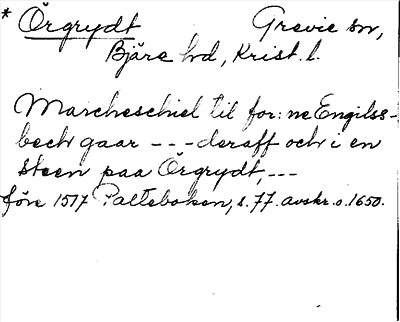 * Örgrydt Grevie sn,
Bjäre hd, Krist. l.
Marcheschiel til for: ne Engilss-
bech gaar --- deraff och i en
steen paa Örgrydt, ---
före 1517 Palteboken, s. 77. avskr. o. 1650.